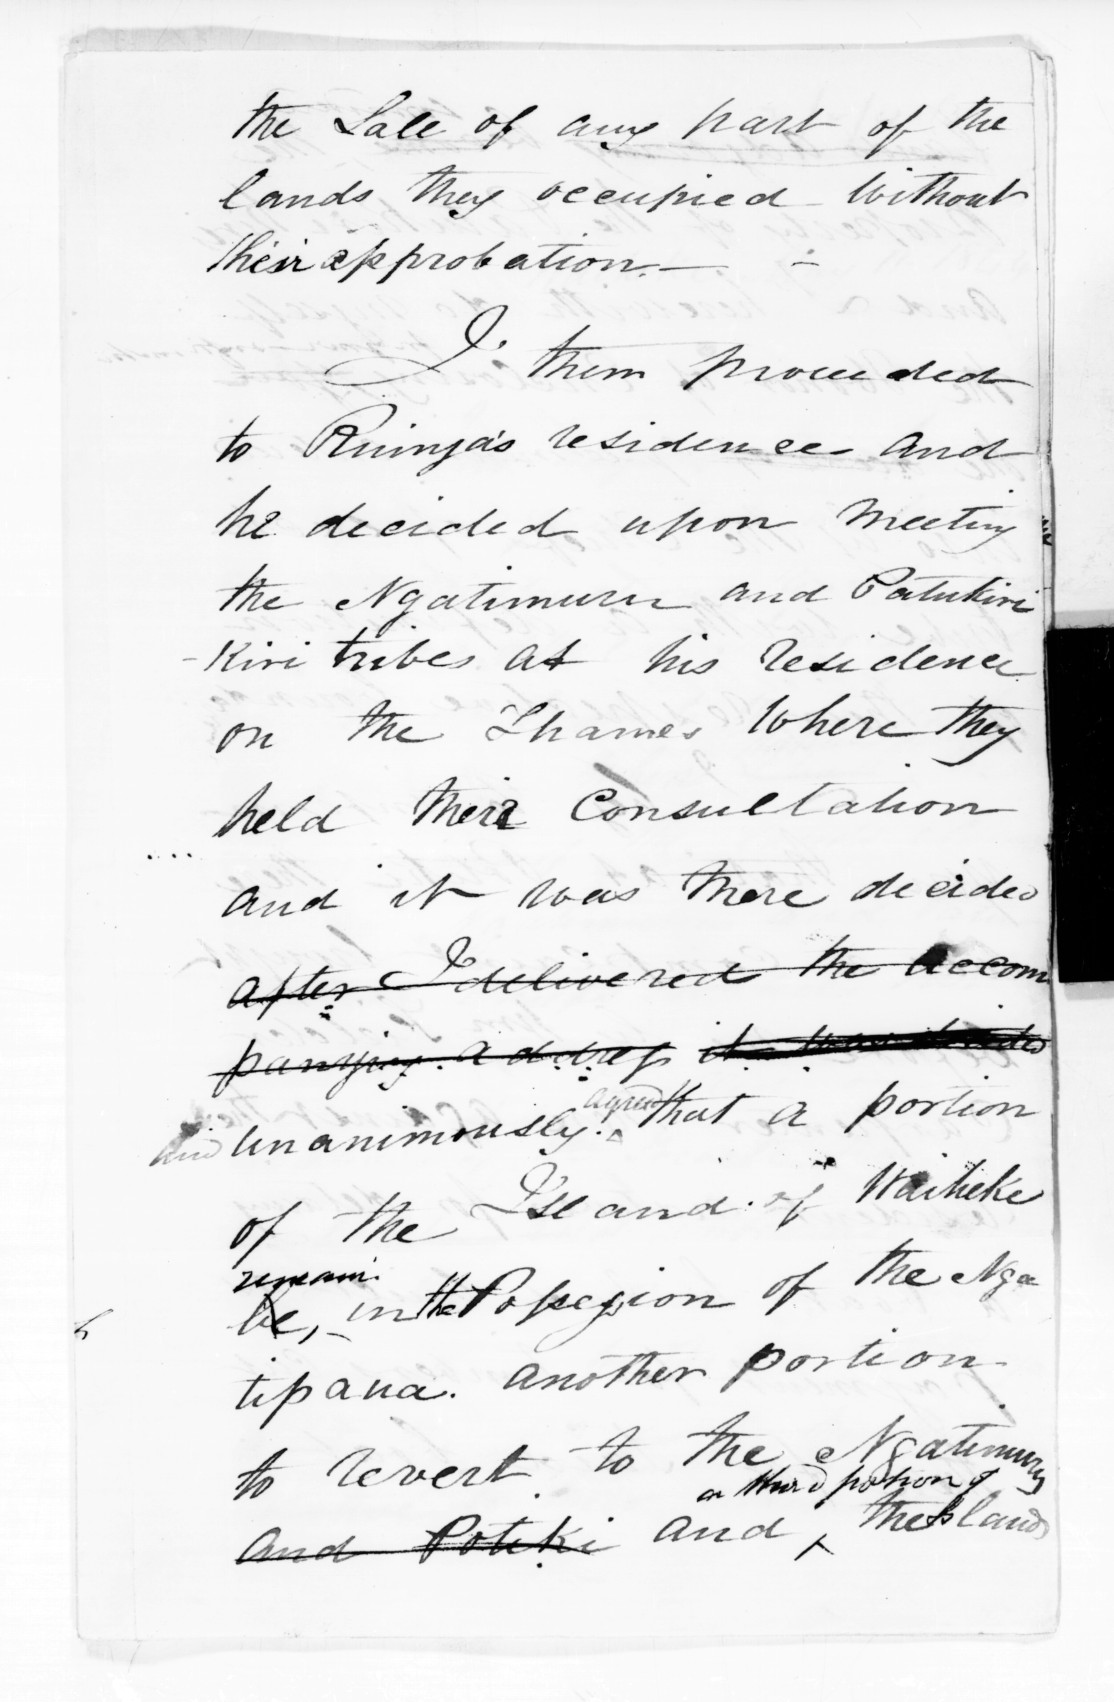 the Sale of any part of the
lands they occupied Without
their approbation. —
I then proceeded
to Ruinga's residence and
he decided upon meeting
the Ngatimuru and Patukiri
- Kiri tribes at his residence
on the Thames Where they
held their Consultation
and it was there decided
after I delivered the accom
panying address it was decided
and unanimously agreed that a portion
of the Island of Waiheke
remain
be, in the Possession of the Nga
tipaua. another portion
to revert to the Ngatimuru
a third portion of
and Potiki and ^ the Island